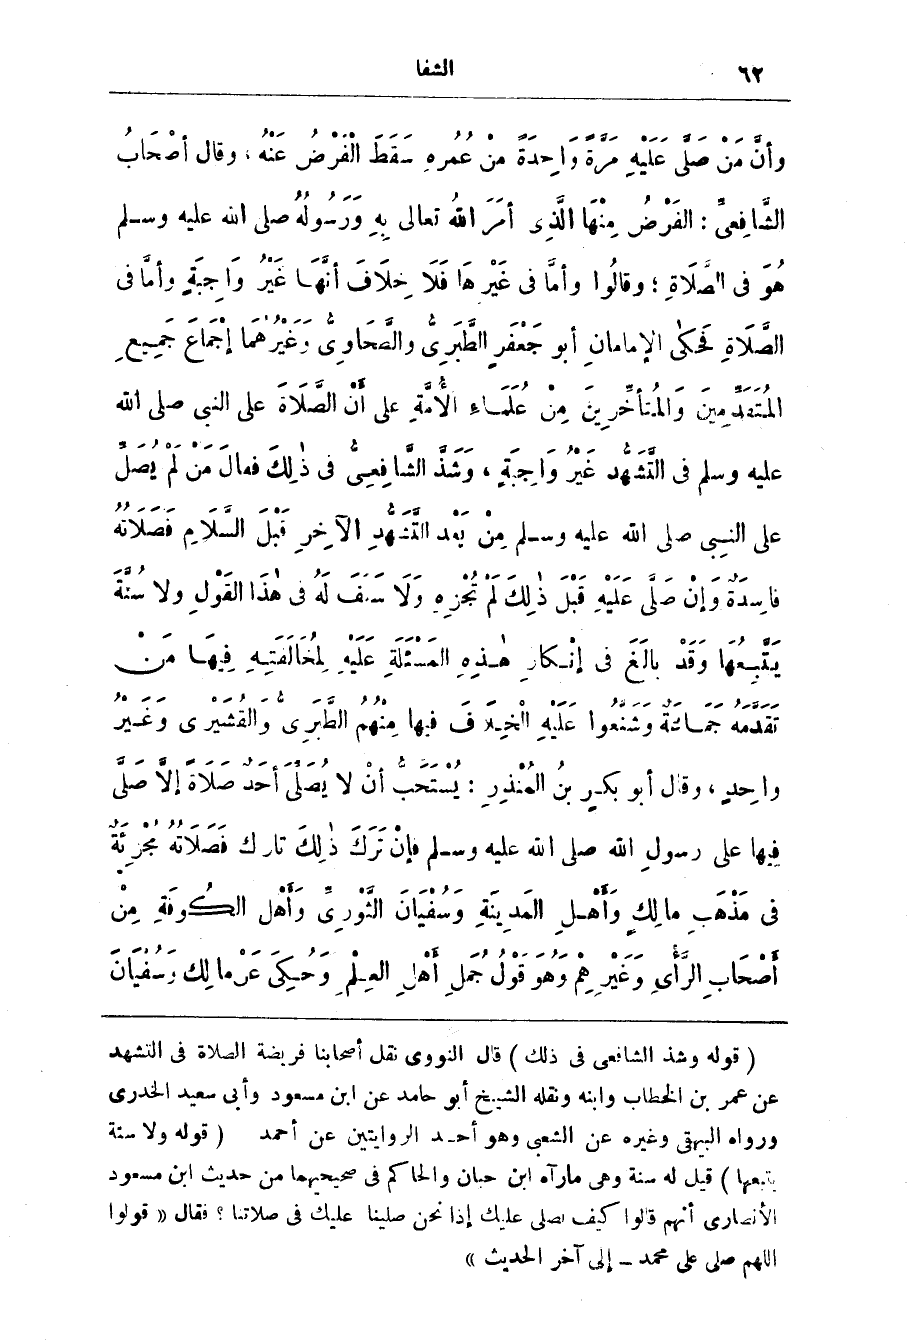 ٦٢
الشفا
وأنَّ مَنْ صَلَّى عَلَيْهِ مَرَّةً وَاحِدَةً مِنْ عُمُرِهِ سَقَطَ الْفَرْضُ عَنْهُ ، وقال أصْحَابُ
الشَّافِعىِّ : الفَرْضُ مِنْهَا الَّذِى أمَرَ اللهُ تعالى بِهِ وَرَسُولُهُ صلى الله عليه وسلم
هُوَ فى الصَّلَاةِ ؛ وقالُوا وأمَّا فى غَيْرِهَا فَلَا خِلَافَ أنَّهَا غَيْرُ وَاجِبَةٍ وأمَّا فى
الصَّلَاةِ فَحَكَى الإمامانِ أبو جَعْفَرٍ الطَّبَرِىُّ والطَّحَاوِىُّ وَغَيْرُهُمَا إجْمَاعَ جَمِيعِ
المُتَقَدِّمِينَ وَالمُتأخِّرِينَ مِنْ عُلَمَاءِ الأُمَّةِ على أنَّ الصَّلَاةَ على النبى صلى الله
عليه وسلم فى التَّشَهُّدِ غَيْرُ وَاجِبَةٍ ، وَشَذَّ الشَّافِعِىُّ فى ذٰلِكَ فقالَ مَنْ لَمْ يُصَلِّ
على النبِى صلى الله عليه وسلم مِنْ بَعْدِ التَّشَهُّدِ الآخِرِ قَبْلَ السَّلَامِ فَصَلَاتُهُ
فاسِدَةٌ وَإنْ صَلَّى عَلَيْهِ قَبْلَ ذٰلِكَ لَمْ تُجْزِهِ وَلَا سَلَفَ لَهُ فى هٰذَا القَوْلِ ولا سُنَّةَ
يَتَّبِعُهَا وَقَدْ بالَغَ فى إنْكارِ هٰذِهِ المَسْئَلَةِ عَلَيْهِ لِمُخَالَفَتِهِ فِيهَا مَنْ
تَقَدَّمَهُ جَمَاعَةٌ وَشَنَّعُوا عَلَيْهِ الْخِلَافَ فيها مِنْهُمُ الطَّبَرِىُّ والقُشَيْرِى وَغَيْرُ
واحِدٍ ، وقال أبو بكرِ بنُ المُنْذِرِ : يُسْتَحَبُّ أنْ لا يُصَلِّىَ أحَدٌ صَلَاةً إلَّا صَلَّى
فِيها على رسولِ الله صلى الله عليه وسلم فإنْ تَرَكَ ذٰلِكَ تارك فَصَلَاتُهُ مُجْزِئَةٌ
فى مَذْهَبِ مالِكٍ وَأَهْلِ المَدِينَةِ وَسُفْيَانَ الثَّوْرِىِّ وَأَهْلِ الكُوفَةِ مِنْ
أصْحَابِ الرَّأْىِ وَغَيْرِهِمْ وَهُوَ قَوْلُ جُمَلِ أهْلِ العِلْمِ وَحُكِىَ عَنْ مالِك وَسُفْيَانَ
( قوله وشذ الشافعى فى ذلك ) قال النووى نقل أصحابنا فريضة الصلاة فى التشهد
عن عمر بن الخطاب وابنه ونقله الشيخ أبو حامد عن ابن مسعود وأبى سعيد الخدرى
ورواه البيهقى وغيره عن الشعبى وهو أحد الروايتين عن أحمد ( قوله ولا سنة
يتبعها ) قيل له سنة وهى مارآه ابن حبان والحاكم فى صحيحيهما من حديث ابن مسعود
الأنصارى أنهم قالوا كيف نصلى عليك إذا نحن صلينا عليك فى صلاتنا ؟ فقال « قولوا
اللهم صلى على محمد ــ إلى آخر الحديث »